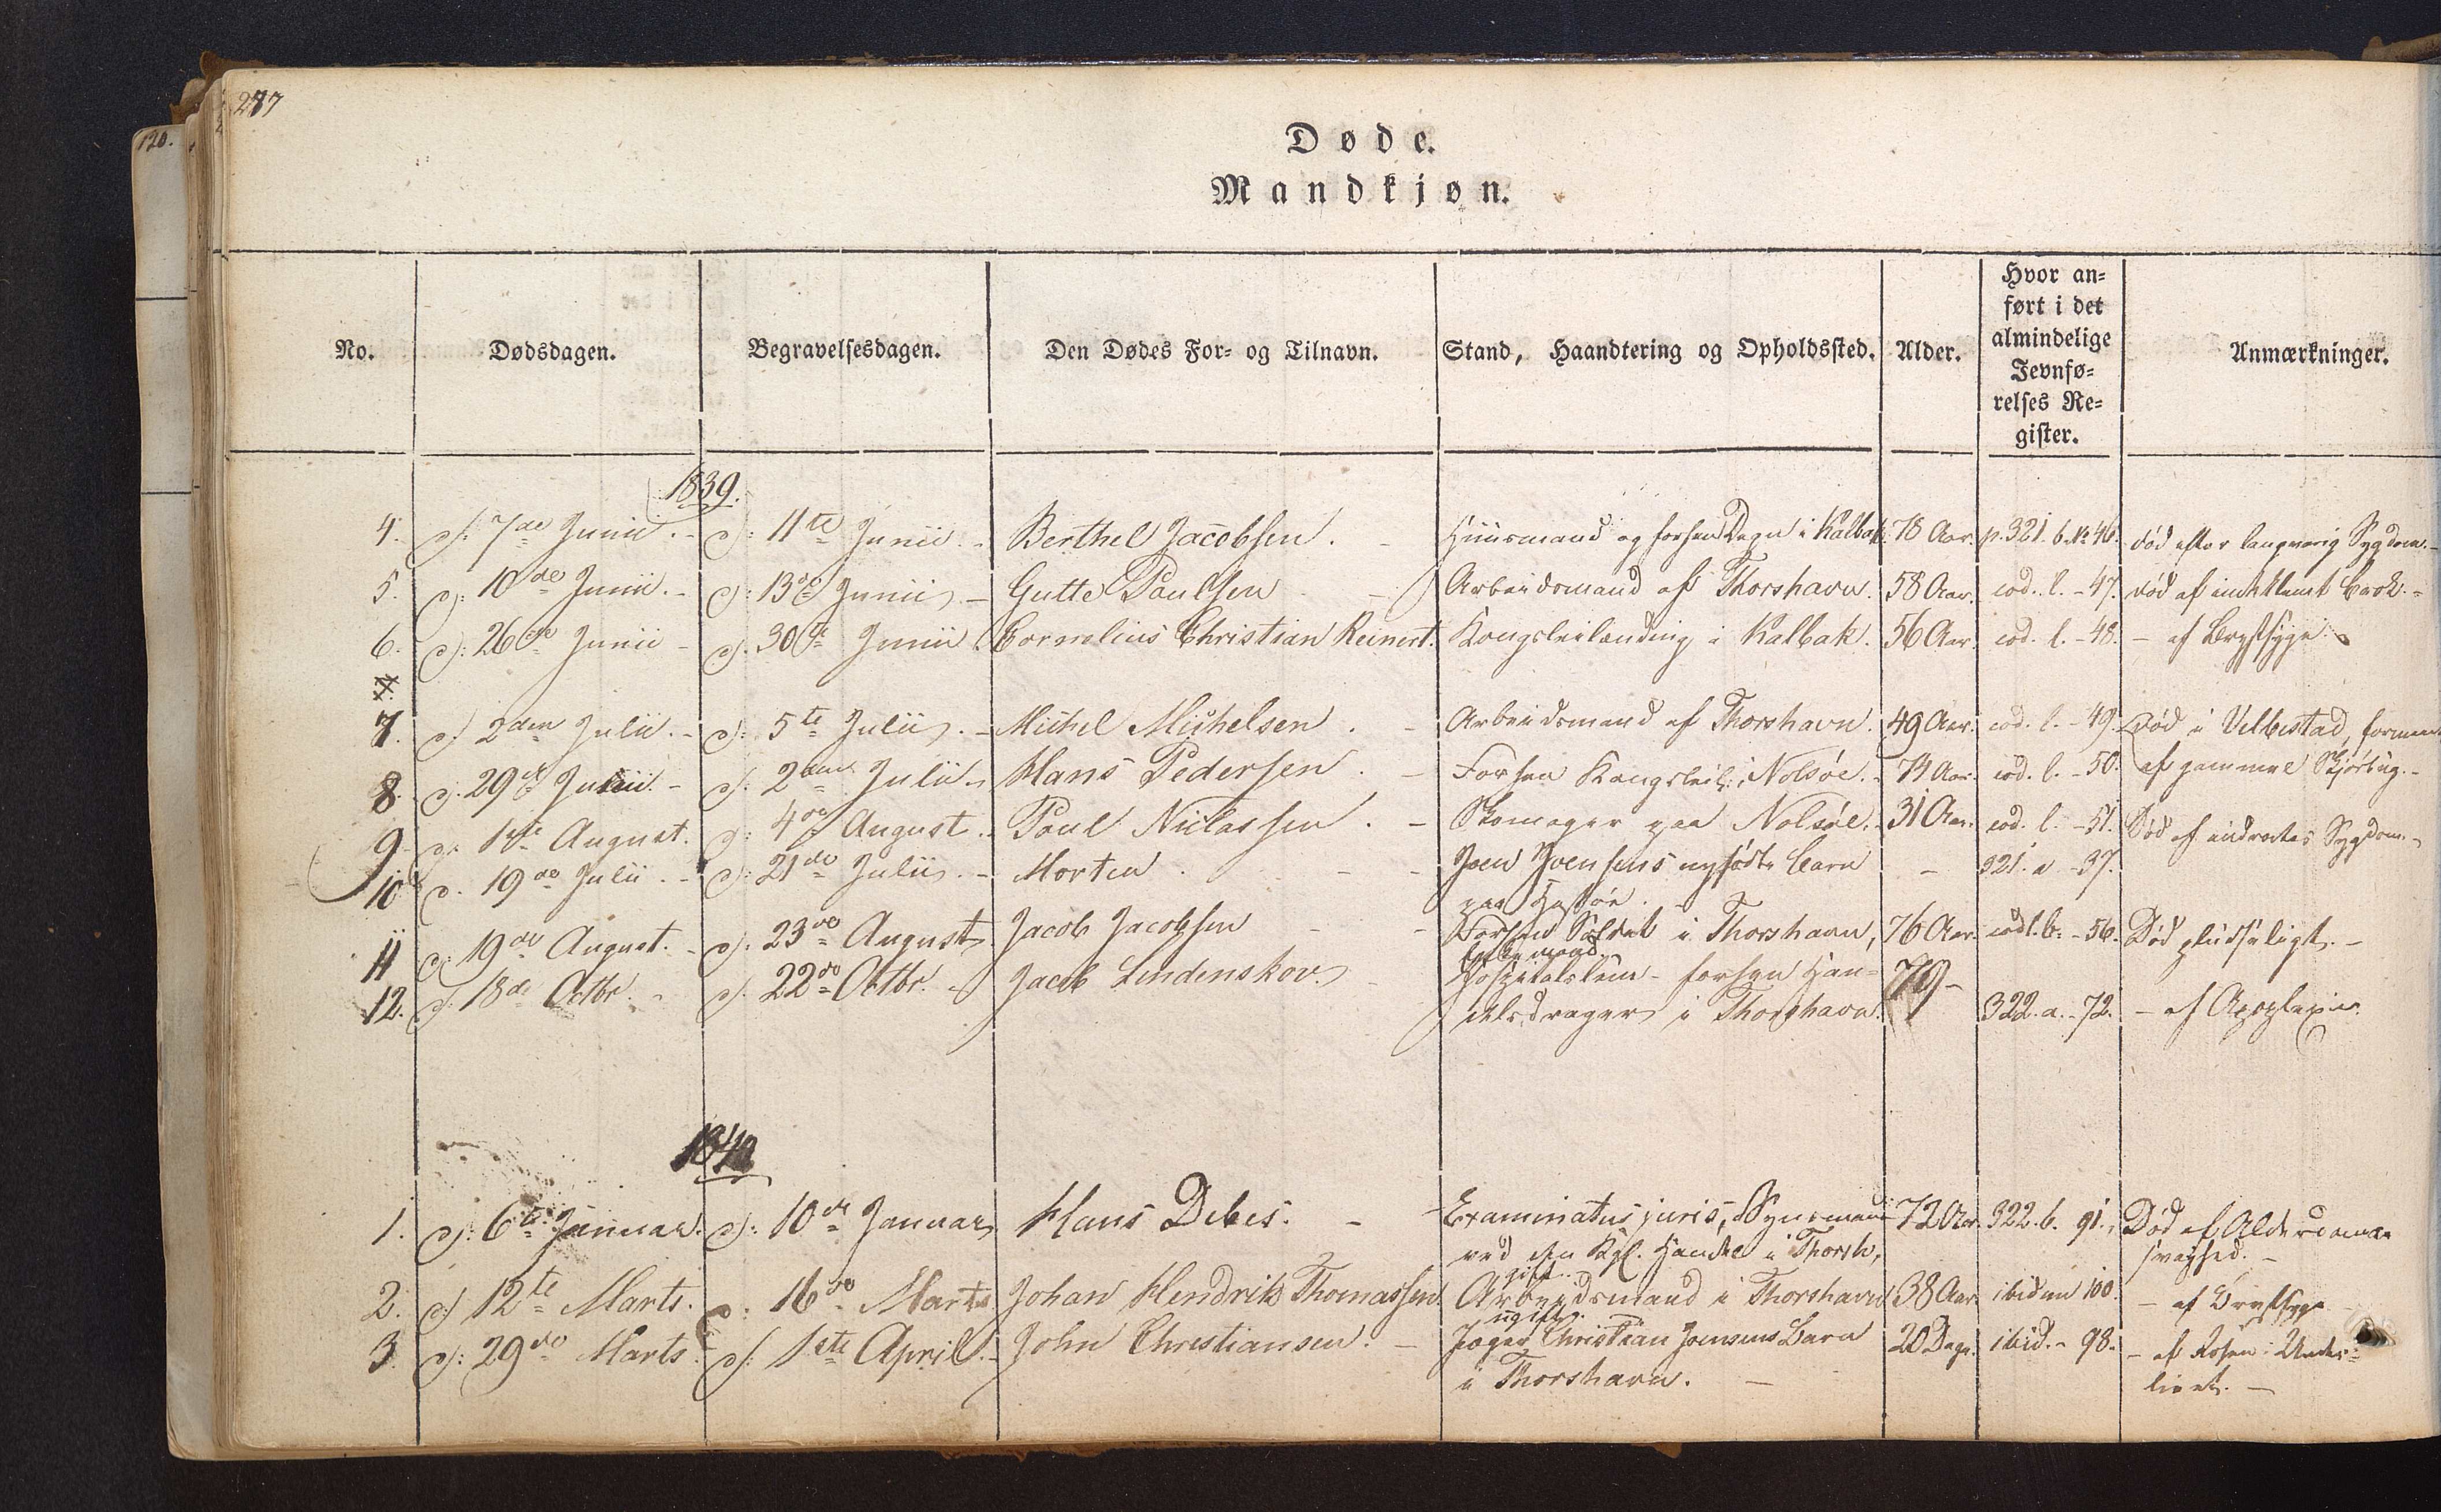 277
120.
Døde.
Mandkjøn.
No. Dødsdagen. Begravelsesdagen. Den Dødes For- og Tilnavn. Stand, Haandtering og Opholdssted. Alder. Hvor an-
ført i det
almindelige
Jevnfø-
relses Re-
gister. Anmærkninger.
1839.
4. d. 7de Junii. - d: 11te Junii. - Berthel Jacobsen. Huusmand og forhen Degn i Kalbak. 78 Aar. p. 321. b. No 46. død efter langvarig Sygdom. -
5. d: 10de Junii. - d: 13de Junii. - Gutte Poulsen Arbeidsmand af Thorshavn. 58 Aar. eod. l. - 47. død af indklemt Brok. -
6. d: 26de Junii - d. 30te Junii. Cornelius Christian Reinert. Kongsleilænding i Kalbak. 56 Aar. eod. l. - 48. - af Brystsyge.
7. d. 2den Julii. - d: 5te Julii. - Michel Michelsen. - Arbeidsmand af Thorshavn. 49 Aar. eod. l. - 49. Død i Velbestad,
8. d. 29de Junii. - d. 2den Julii. Hans Pedersen. - Forhen Kongsleil: i Nolsøe. - 74 Aar. eod. l. - 50. af gammel Skjørbug. -
9. d. 1ste August. d: 4de August. Poul Niclassen. - Skomager paa Nolsøe. - 31 Aar. eod. l. - 51. Død af indvortes Sygdom. -
10 d. 19de Julii. - d: 21de Julii. - Morten. - - Joen Joensens nyfødte Barn - 321. a - 37.
paa Hestøe.
11 d: 19de August. - d. 23de August Jacob Jacobsen - - Forhen Soldat i Thorshavn, 76 Aar. eod l. b. - 56. Død pludseligt. -
12. d. 18de Octbr. - d. 22de Octbr. Jacob Lindenskov. Hospitalslem - forhen Han-
delsdrager i Thorshavn. 79 - 322. a. - 72. - af Apoplexie.
1840
1. d: 6te Januar. d: 10de Januar Hans Debes. - Examinatus juris, Synsmand 72 Aar. 322. b. 91. Død af Alderdoms
ved den Kgl. Handel i Thorsh, svaghed. -
gift.
2. d. 12te Marts. d: 16de Marts Johan Hendrik Thomassen. Arbeidsmand i Thorshavn 38 Aar. ibidem 100. - af Brystsyge
ugift.
3. d: 29de Marts. d. 1ste April. - John Christiansen. - Jæger Christian Joensens Barn 20 Dage. ibid. - 98. - af Rosen i Under-
i Thorshavn. - livet. -